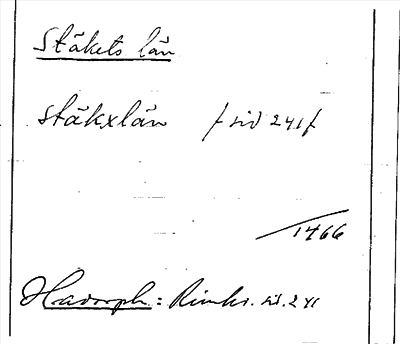 Stäkets län
stäkxlän / sid 241/
1466
Hadorph: Rimkr. sid. 241